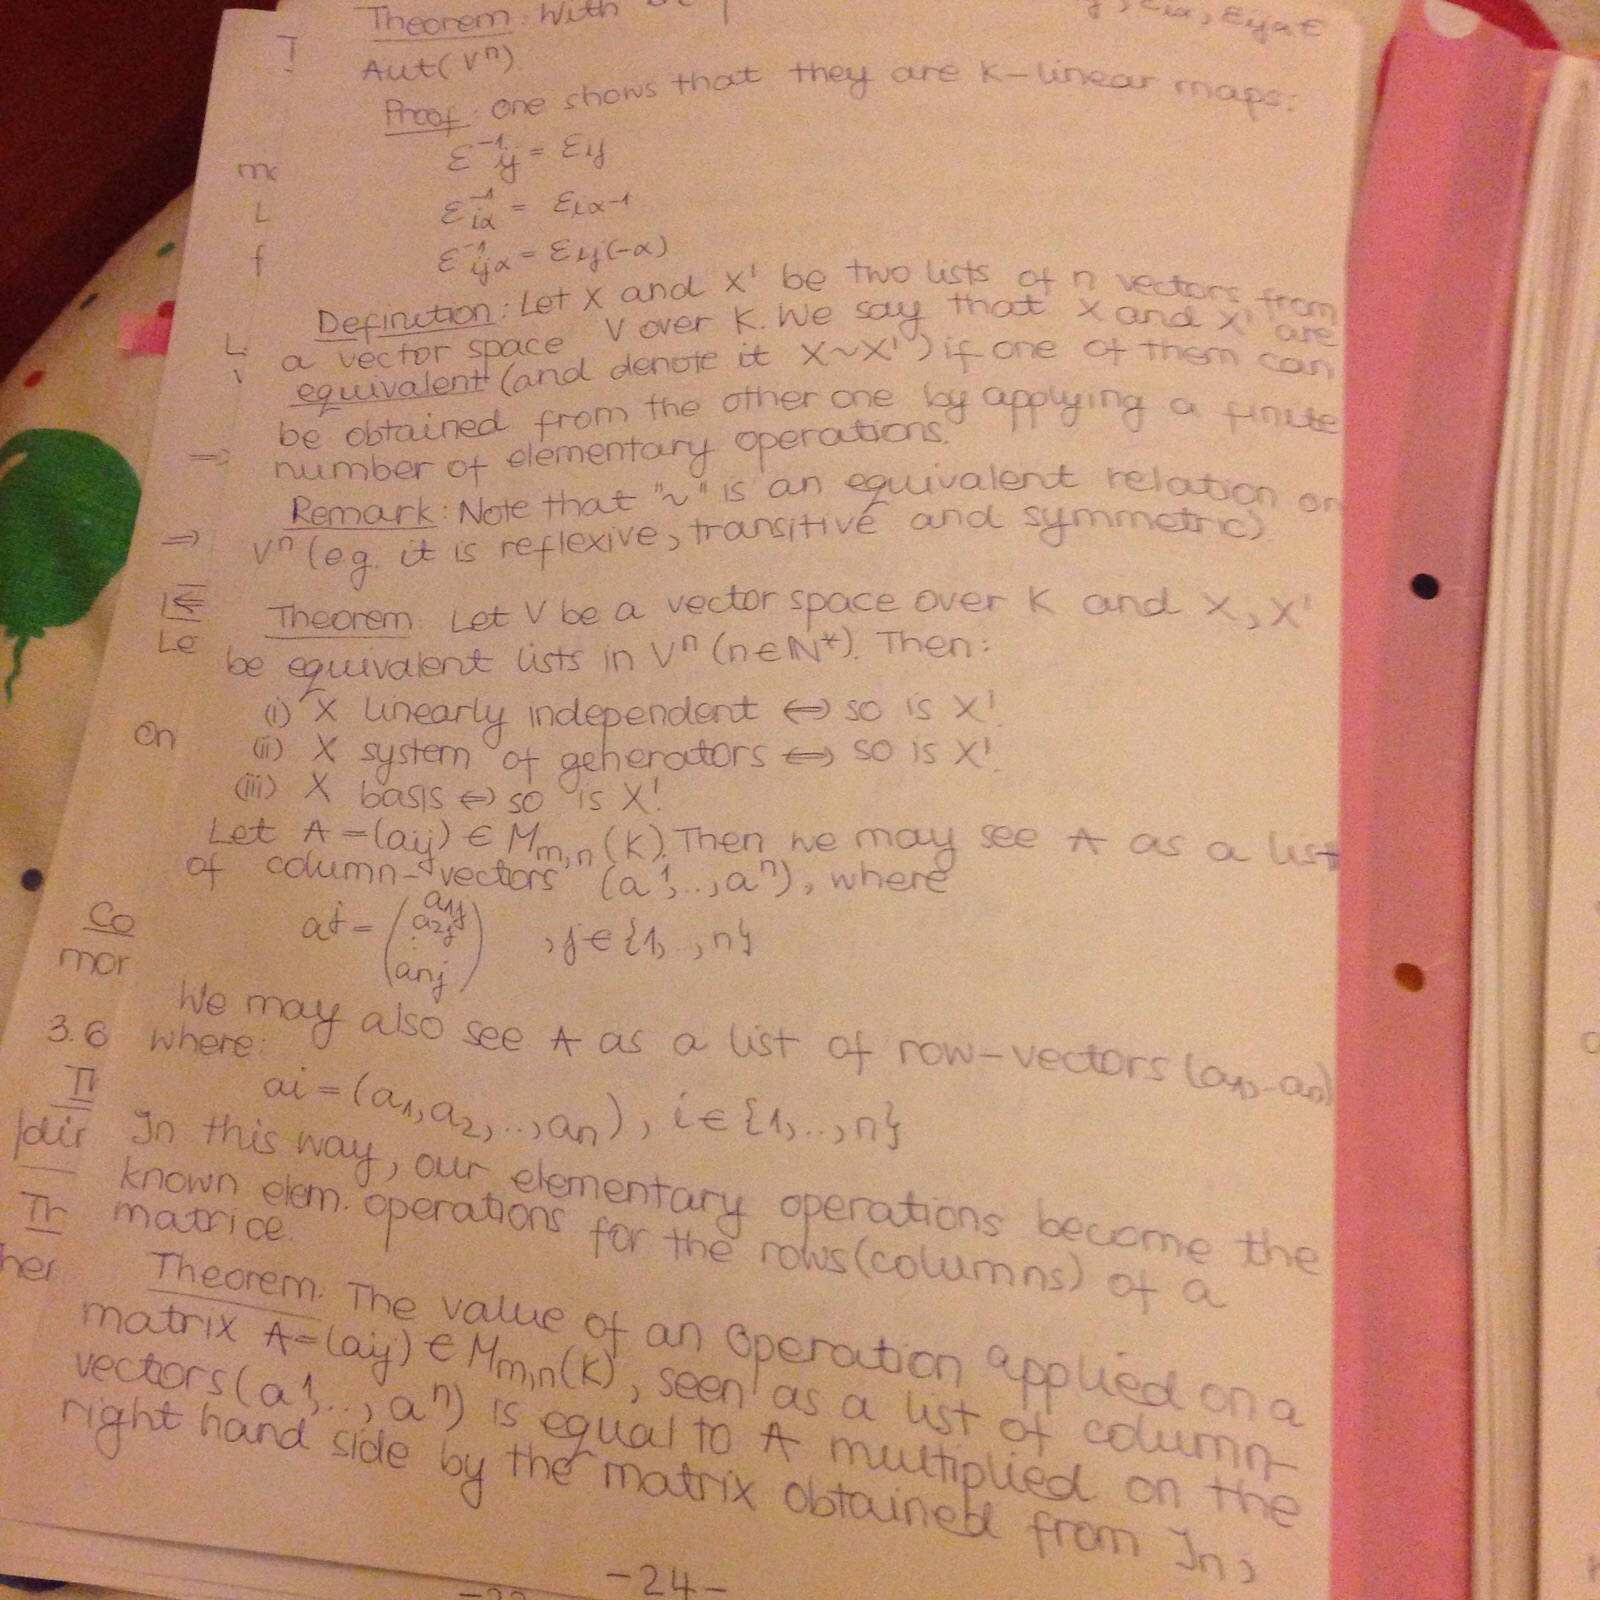 Theorem: With
Aut(Vⁿ).
Proof: One shows that they are K-linear maps:
ε⁻¹ij = εij
ε⁻¹iα = εiα⁻¹
ε⁻¹ijα = εij(-α)
Definition: Let X and X' be two lists of n vectors from
a vector space V over K. We say that X and X' are
equivalent (and denote it X~X') if one of them can
be obtained from the other one by applying a finite
number of elementary operations.
Remark: Note that "~" is an equivalent relation on
Vⁿ (e.g. it is reflexive, transitive and symmetric).
Theorem: Let V be a vector space over K and X, X'
be equivalent lists in Vⁿ (n∈N*). Then:
(i) X linearly independent ⇔ so is X'.
(ii) X system of generators ⇔ so is X'.
(iii) X basis ⇔ so is X'.
Let A=(aij) ∈ Mm,n(K). Then we may see A as a list
of column-vectors (a¹,..,aⁿ), where
aʲ = (a1j a2j : anj) , j∈{1,..,n}
We may also see A as a list of row-vectors (a1,..an)
where:
ai = (a1, a2,..,an), i∈{1,..,n}
In this way, our elementary operations become the
known elem. operations for the rows(columns) of a
matrice.
Theorem: The value of an operation applied on a
matrix A=(aij) ∈ Mm,n(K), seen as a list of column-
vectors (a¹,..,aⁿ) is equal to A multiplied on the
right hand side by the matrix obtained from In,
-24-
T
mc
L
f
L
⇒
⇒
Le
on
Co
mor
3.6
Th
ldir
Th
her